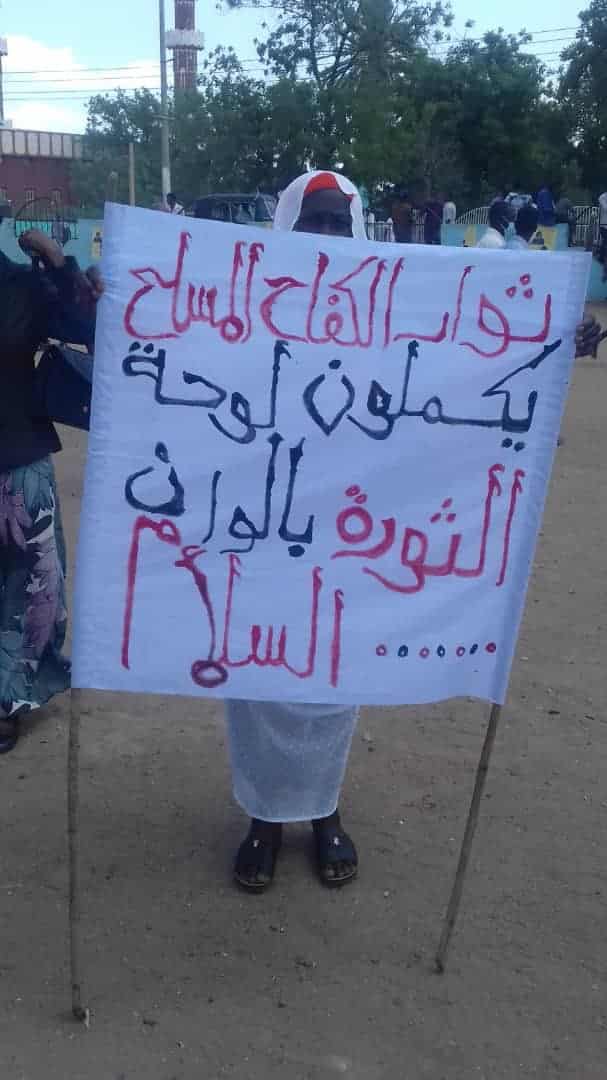 ثوار الكفاح المسلح
يكملون لوحة
الثورة بالوان
....... السلام